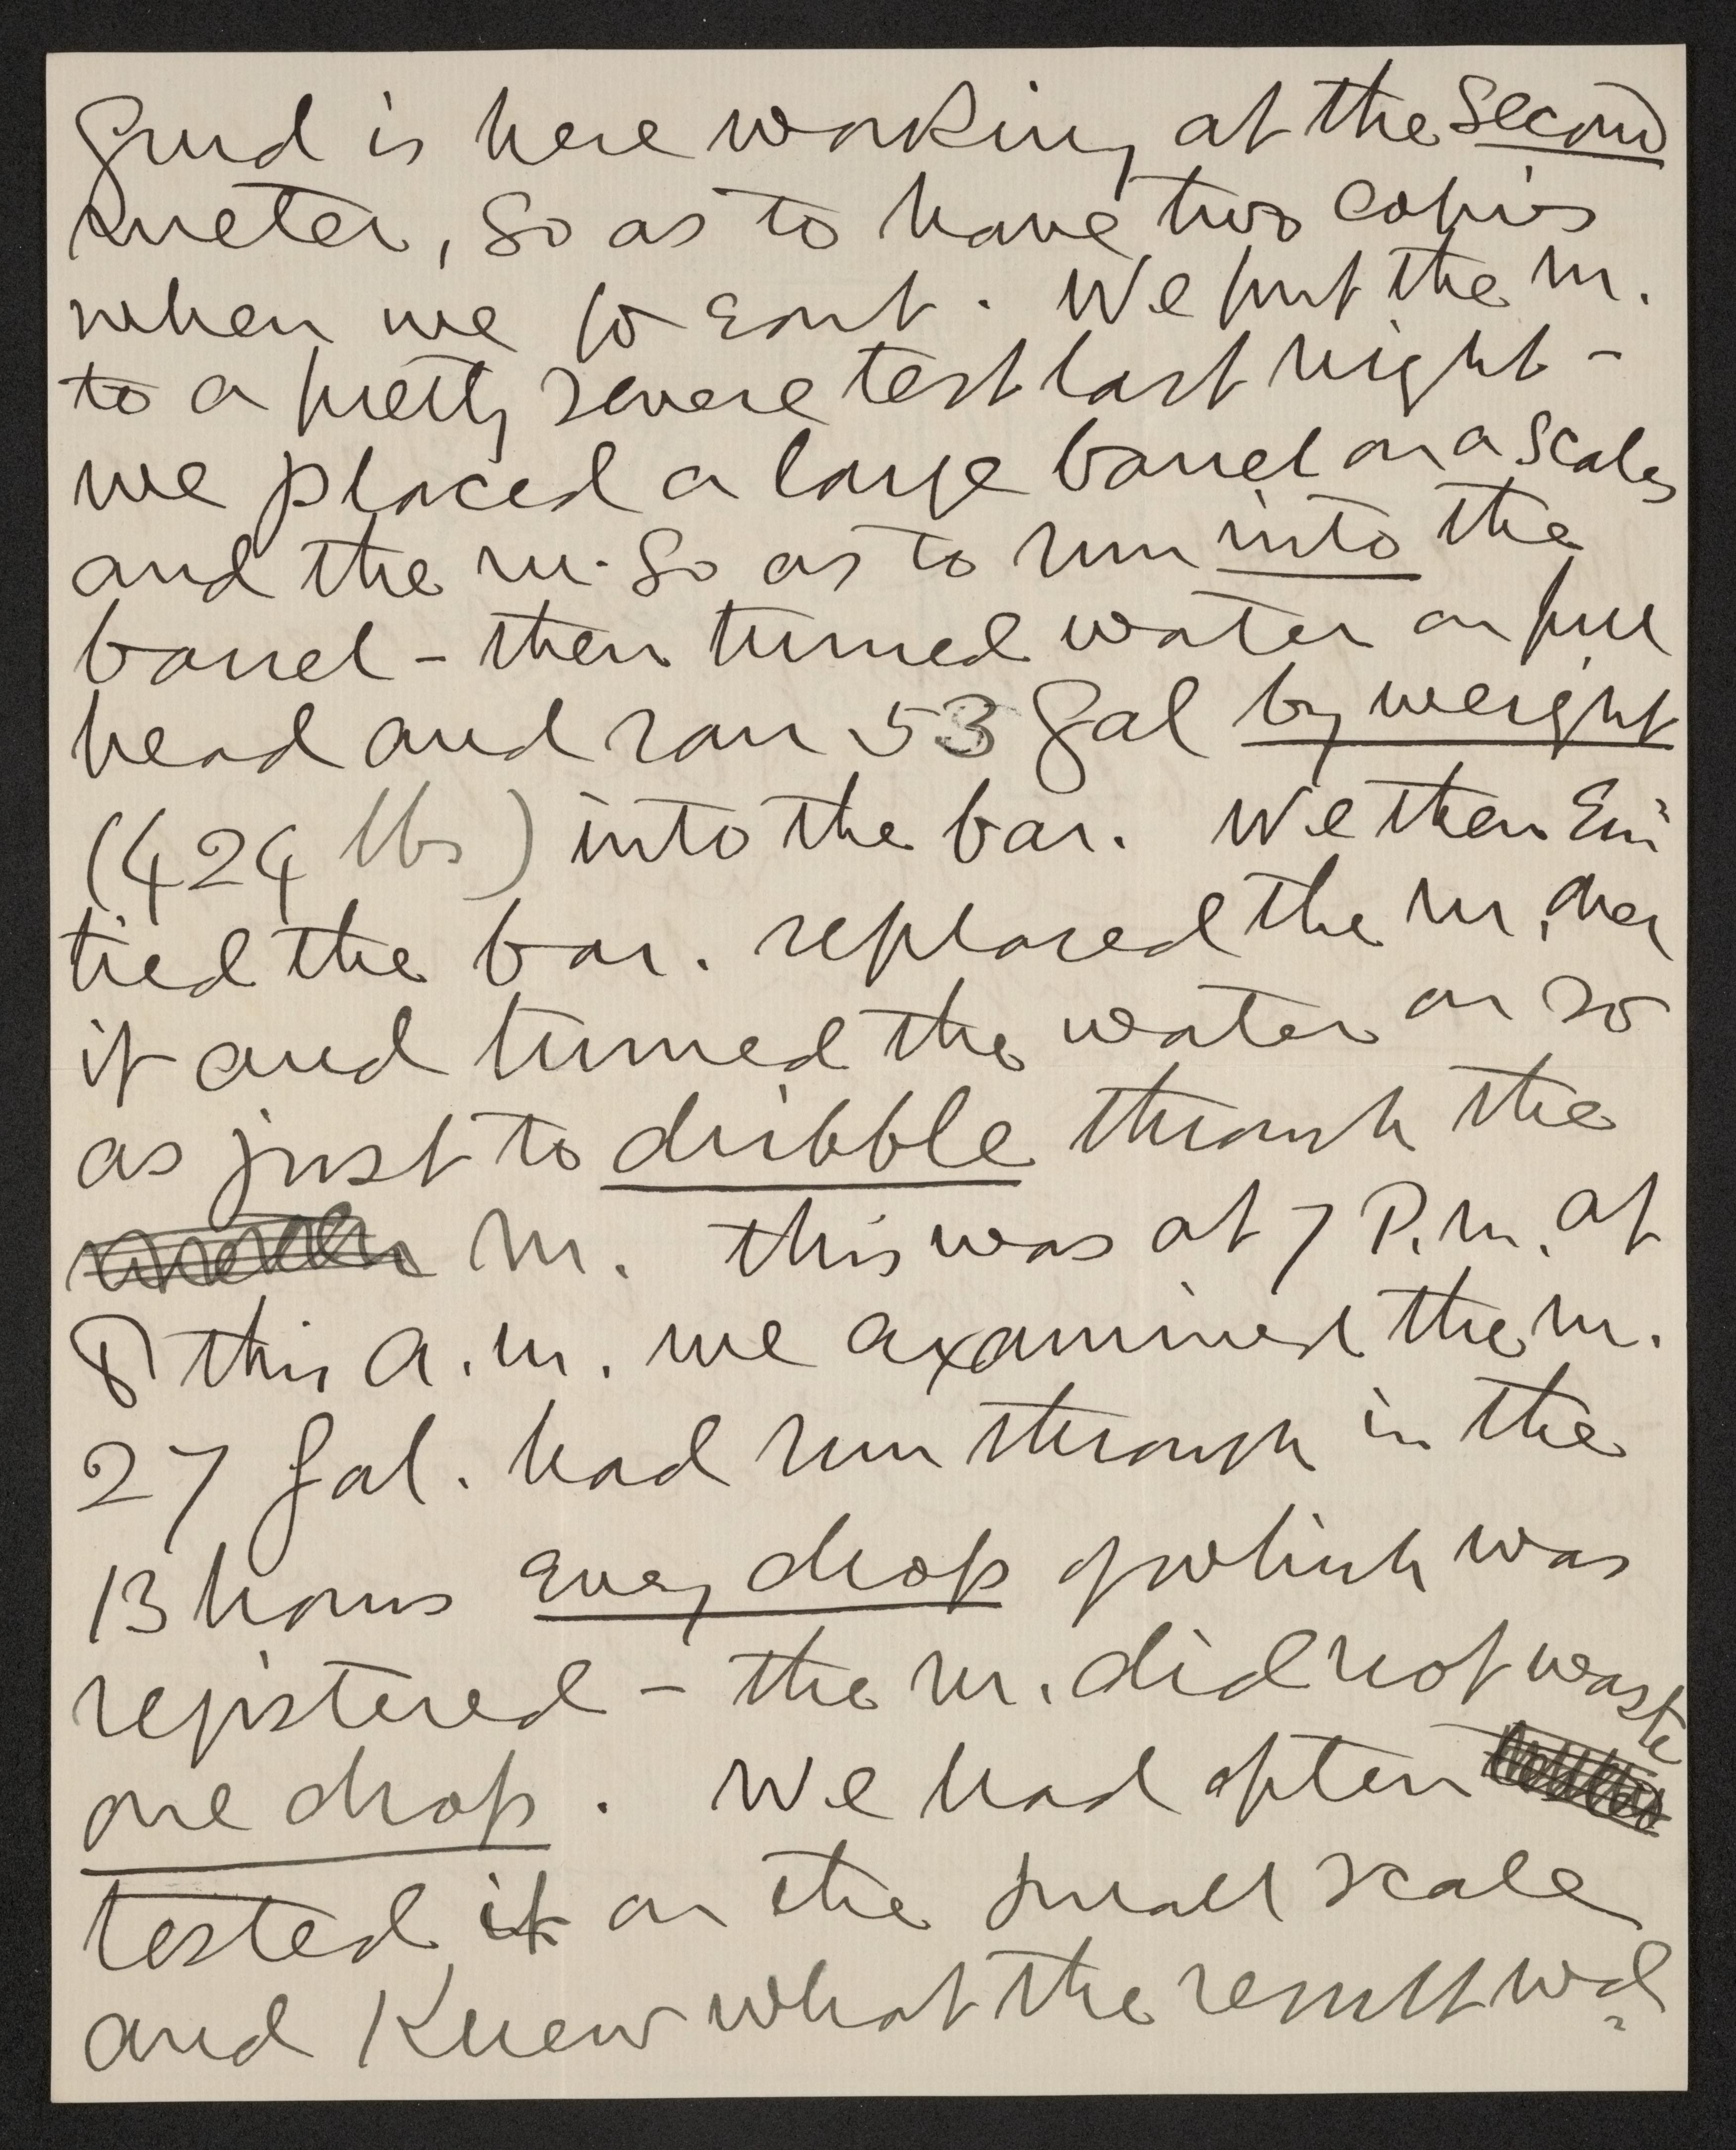 Gurd is here working at the second
meter, so as to have two copies
when we go East. We put the m.
to a pretty severe test last night -
we placed a large barrel on a scales
and the m. so as to run into the
barrel - then turned water on full
head and ran 53 gal by weight
(424 lbs) into the bar. We then em
tied the bar. replaced the m. over
it and turned the water on so
as just to dribble through the
m. this was at 7 P.m. at
8 this a.m. we axamined the m.
27 gal. had run through in the
13 hours every drop of which was
registered - the m. did not waste
one drop. We had often
tested it on the small scale
and knew what the result wd